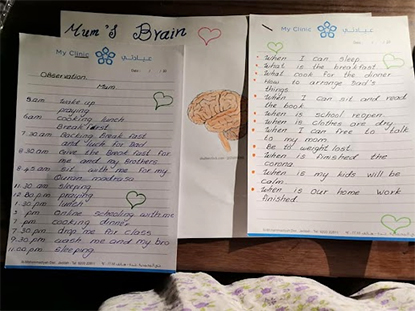 Mum's Brain
My Clinic عيادتي
Observation.
Mum
5 am wake up
praying
6am cooking lunch
Breakfast
7.30am Packing Break fast
and lunch for Dad
8.30am Give the Break fast for
me and my Brothers
8.45am Sit with me for my
Quran madrasa
11.30 am sleeping
12.30pm praying
1.30 pm lunch
3 pm Online schooling with me
7 pm cooking dinner
7.30 pm drop me for class
9.30 pm wash me and my bro
11:00 pm sleeping
My Clinic عيادتي
When I can sleep
What is the breakfast
What cook for the dinner
How to arrange
things
While I can sit and read
the book
When is school reopen
When is clothes are dry
When I can free to talk
to my mom
Be to weight lost.
When is finished the
corona.
When is my kids will be
calm
When is our home work
finished.